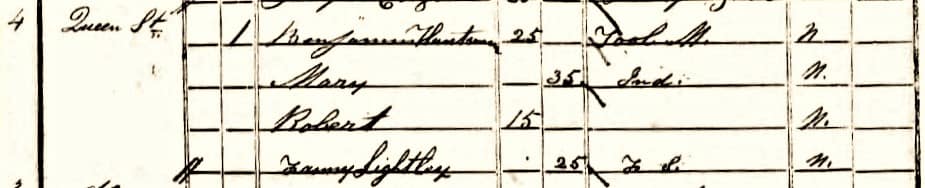 4 Queen St. 1 Benjamin Huntsman 25 Tool M. N
Mary 35 Ind. N.
Robert 15 N.
Fanny Lightley 25 F S. N.